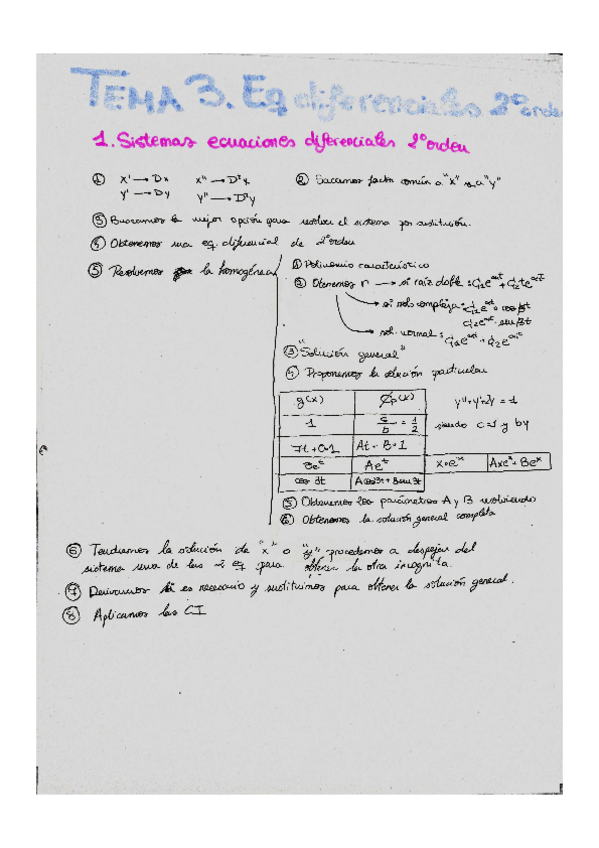 TEMA 3. Eq diferenciales 2º orden
1. Sistemas ecuaciones diferenciales 2º orden
① x' → Dx x'' → D²x
y' → Dy y'' → D²y
② Sacamos factor común a "x" o a "y"
③ Buscamos la mejor opción para resolver el sistema por sustitución.
④ Obtenemos una eq. diferencial de 2º orden
⑤ Resolvemos la homogénea
① Polinomio característico
② Obtenemos r → si raiz doble : C₁e^αt + C₂te^αt
→ si sols complejas : C₁e^αt · cos βt
C₂e^αt · sin βt
sol. normal : C₁e^αt + C₂e^αt
③ "Solución general"
④ Proponemos la solución particular
g(x) Øp(x) y''+y'+2y = 1
1 c/b = 1/2 siendo c=1 y by
7t + 0·1 At + B·1
8e^t Ae^t x·e^x Axe^x + Be^x
cos 3t A cos 3t + B sin 3t
⑤ Obtenemos los parámetros A y B resolviendo
⑥ Obtenemos la solución general completa
⑥ Tendremos la solución de "x" o "y" procedemos a despejar del
sistema una de las 2 eq para obtener la otra incognita.
⑦ Derivamos si es necesario y sustituimos para obtener la solución general.
⑧ Aplicamos las CI